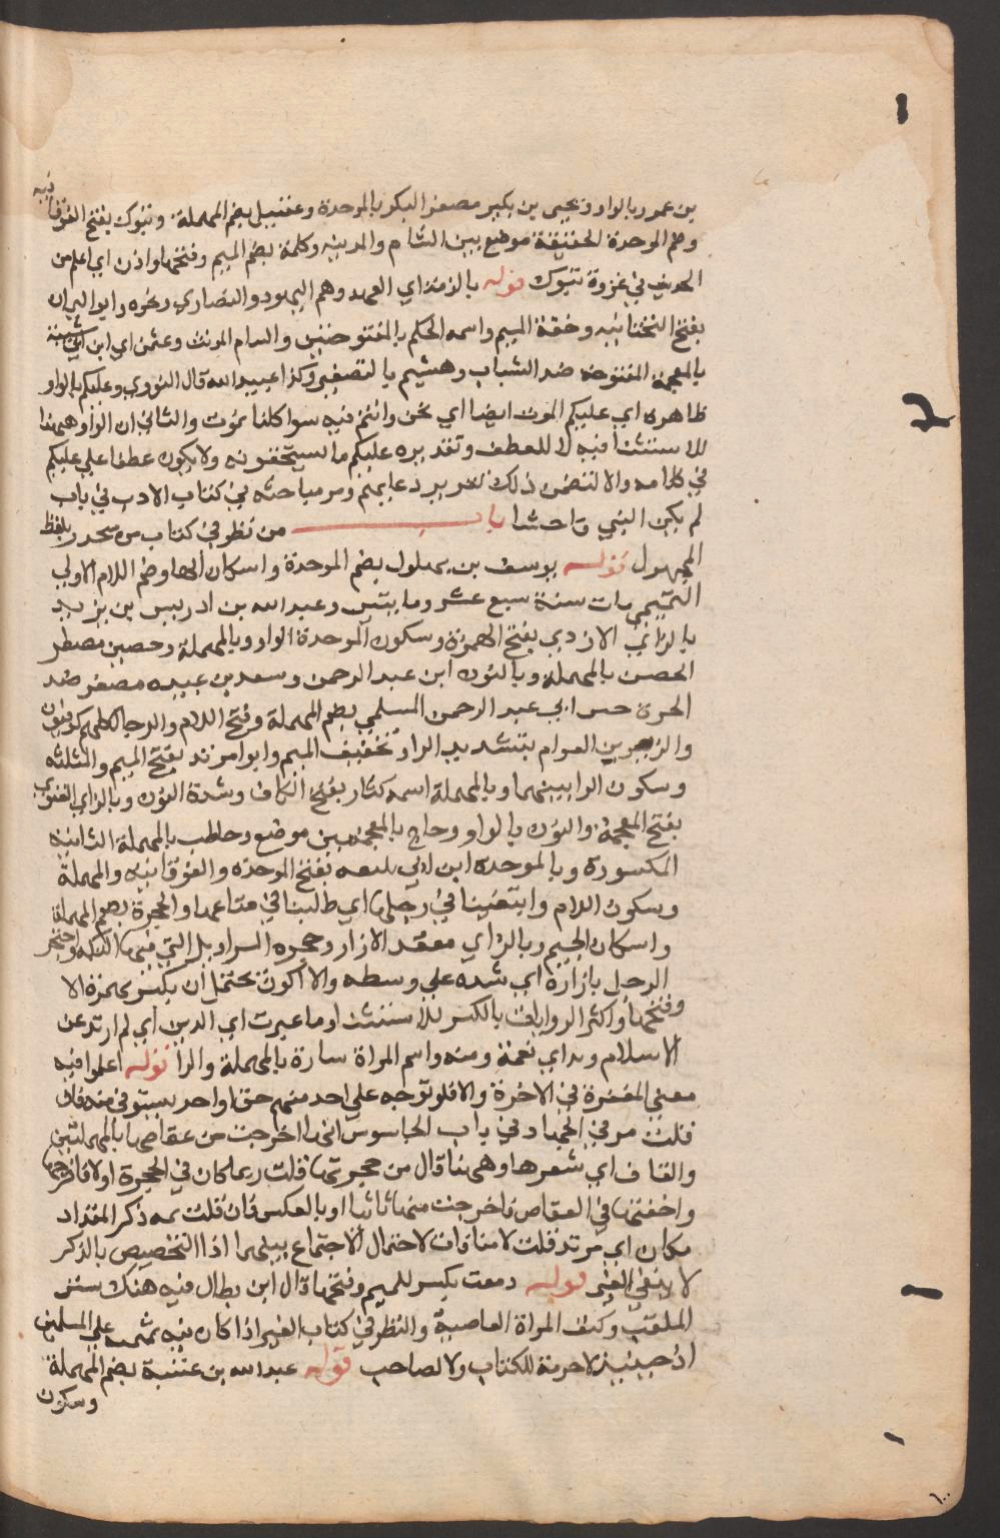 بن عمرو بالواو ويحيى بن بكير مصغر البكر بالموحدة وعقيل بضم المهملة وتبوك بفتح الفوقانيه
وضم الموحدة الخفيفة موضع بين الشام والمدينه وكلمة بضم الميم وفتحها واذن اي اعلم من
الحديث في غزوة تبوك قوله بالذمة اي العهد وهم اليهود والنصاري ونحوه وابو اليمان
بفتح التحتانيه وخفة الميم واسمه الحكم بالمفتوحتين والسام الموت وعثمن اي ابن ابي شيبة
بالمعجمة المفتوحه ضد الشباب وهشيم بالتصغير وكذا عبيد الله قال النووي وعليكم بالواو
ظاهره اي عليكم الموت ايضا اي نحن وانتم فيه سوا كلنا نموت والثاني ان الواو ههنا
للاستئناف فيه لا للعطف وتقديره عليكم ما تستحقونه ولا يكون عطفا علي عليكم
في كلامه والا لتضمن ذلك تقرير دعايهم ومر مباحثه في كتاب الادب في باب
لم يكن النبي فاحشا باب من نظر في كتاب من يحذر بلفظ
المجهول قوله يوسف بن بهلول بضم الموحدة واسكان الها وضم اللام الاولي
التميمي مات سنة سبع عشر ومايتين وعبد الله بن ادريس بن يزيد
بالزاي الازدي بفتح الهمزة وسكون الموحدة الواو وبالمهملة وحصين مصطر
الحصن بالمهملة وبالنون ابن عبد الرحمن وسعد بن عبيده مصغر ضد
الحرة ابي عبد الرحمن السلمي بضم المهملة وفتح اللام والرجال كلهم كوفيون
والزبير بن العوام بتشديد الواو تخفيف الميم وابو مرثد بفتح الميم والمثلثه
وسكون الرا بينهما وبالمهملة اسمه كناز بفتح الكاف وشدة النون وبالزاي الغنوي
بفتح المعجمة والنون بالواو وحاج بالمعجمتين موضع وحاطب بالمهملة الثانيه
المكسورة وبالموحده ابن ابي بلتعه بفتح الموحدة والفوقانيه والمهملة
وسكون اللام وابتغينا في رحلها اي طلبنا في متاعها والحجزة بضم المهملة
واسكان الجيم وبالزاي معقد الازار وحجزه السراويل التي فيها التكه واحتجز
الرجل بازاره اي شده علي وسطه والا اكون يحتمل ان يكسر همزة الا
وفتحها واكثر الروايات بالكسر للاستثنا وما غيرت اي الدين اي لم ارتد عن
الاسلام ويد اي نعمة ومنه واسم المراة سارة بالمهملة والرا قوله اعملوا فيه
معني المغفرة في الاخرة والا فلو توجه علي احد منهم حق او احد يستوفي منه فان
قلت مر في الجهاد في باب الجاسوس انها اخرجت من عقاصها بالمهملتين
والقاف اي شعرها وههنا قال من حجزتها قلت ربما كان في الحجزة اولا فاخرجتها
واخفتها في العقاص فاخرجت منها ثانيا او بالعكس فان قلت ثمه ذكر المقداد
مكان ابي مرتد قلت لا منافاة لاحتمال الاجتماع بينهما اذ التخصيص بالذكر
لا ينفي الغير قوله دمعت بكسر للميم وفتحها قال ابن بطال فيه هتك ستر
المذنب وكشف المراة العاصية والنظر في كتاب الغير اذا كان فيه تهمة علي المسلمين
اذ حينيذ لا حرمة للكتاب ولا لصاحب قوله عبد الله بن عتبة بضم المهملة
وسكون